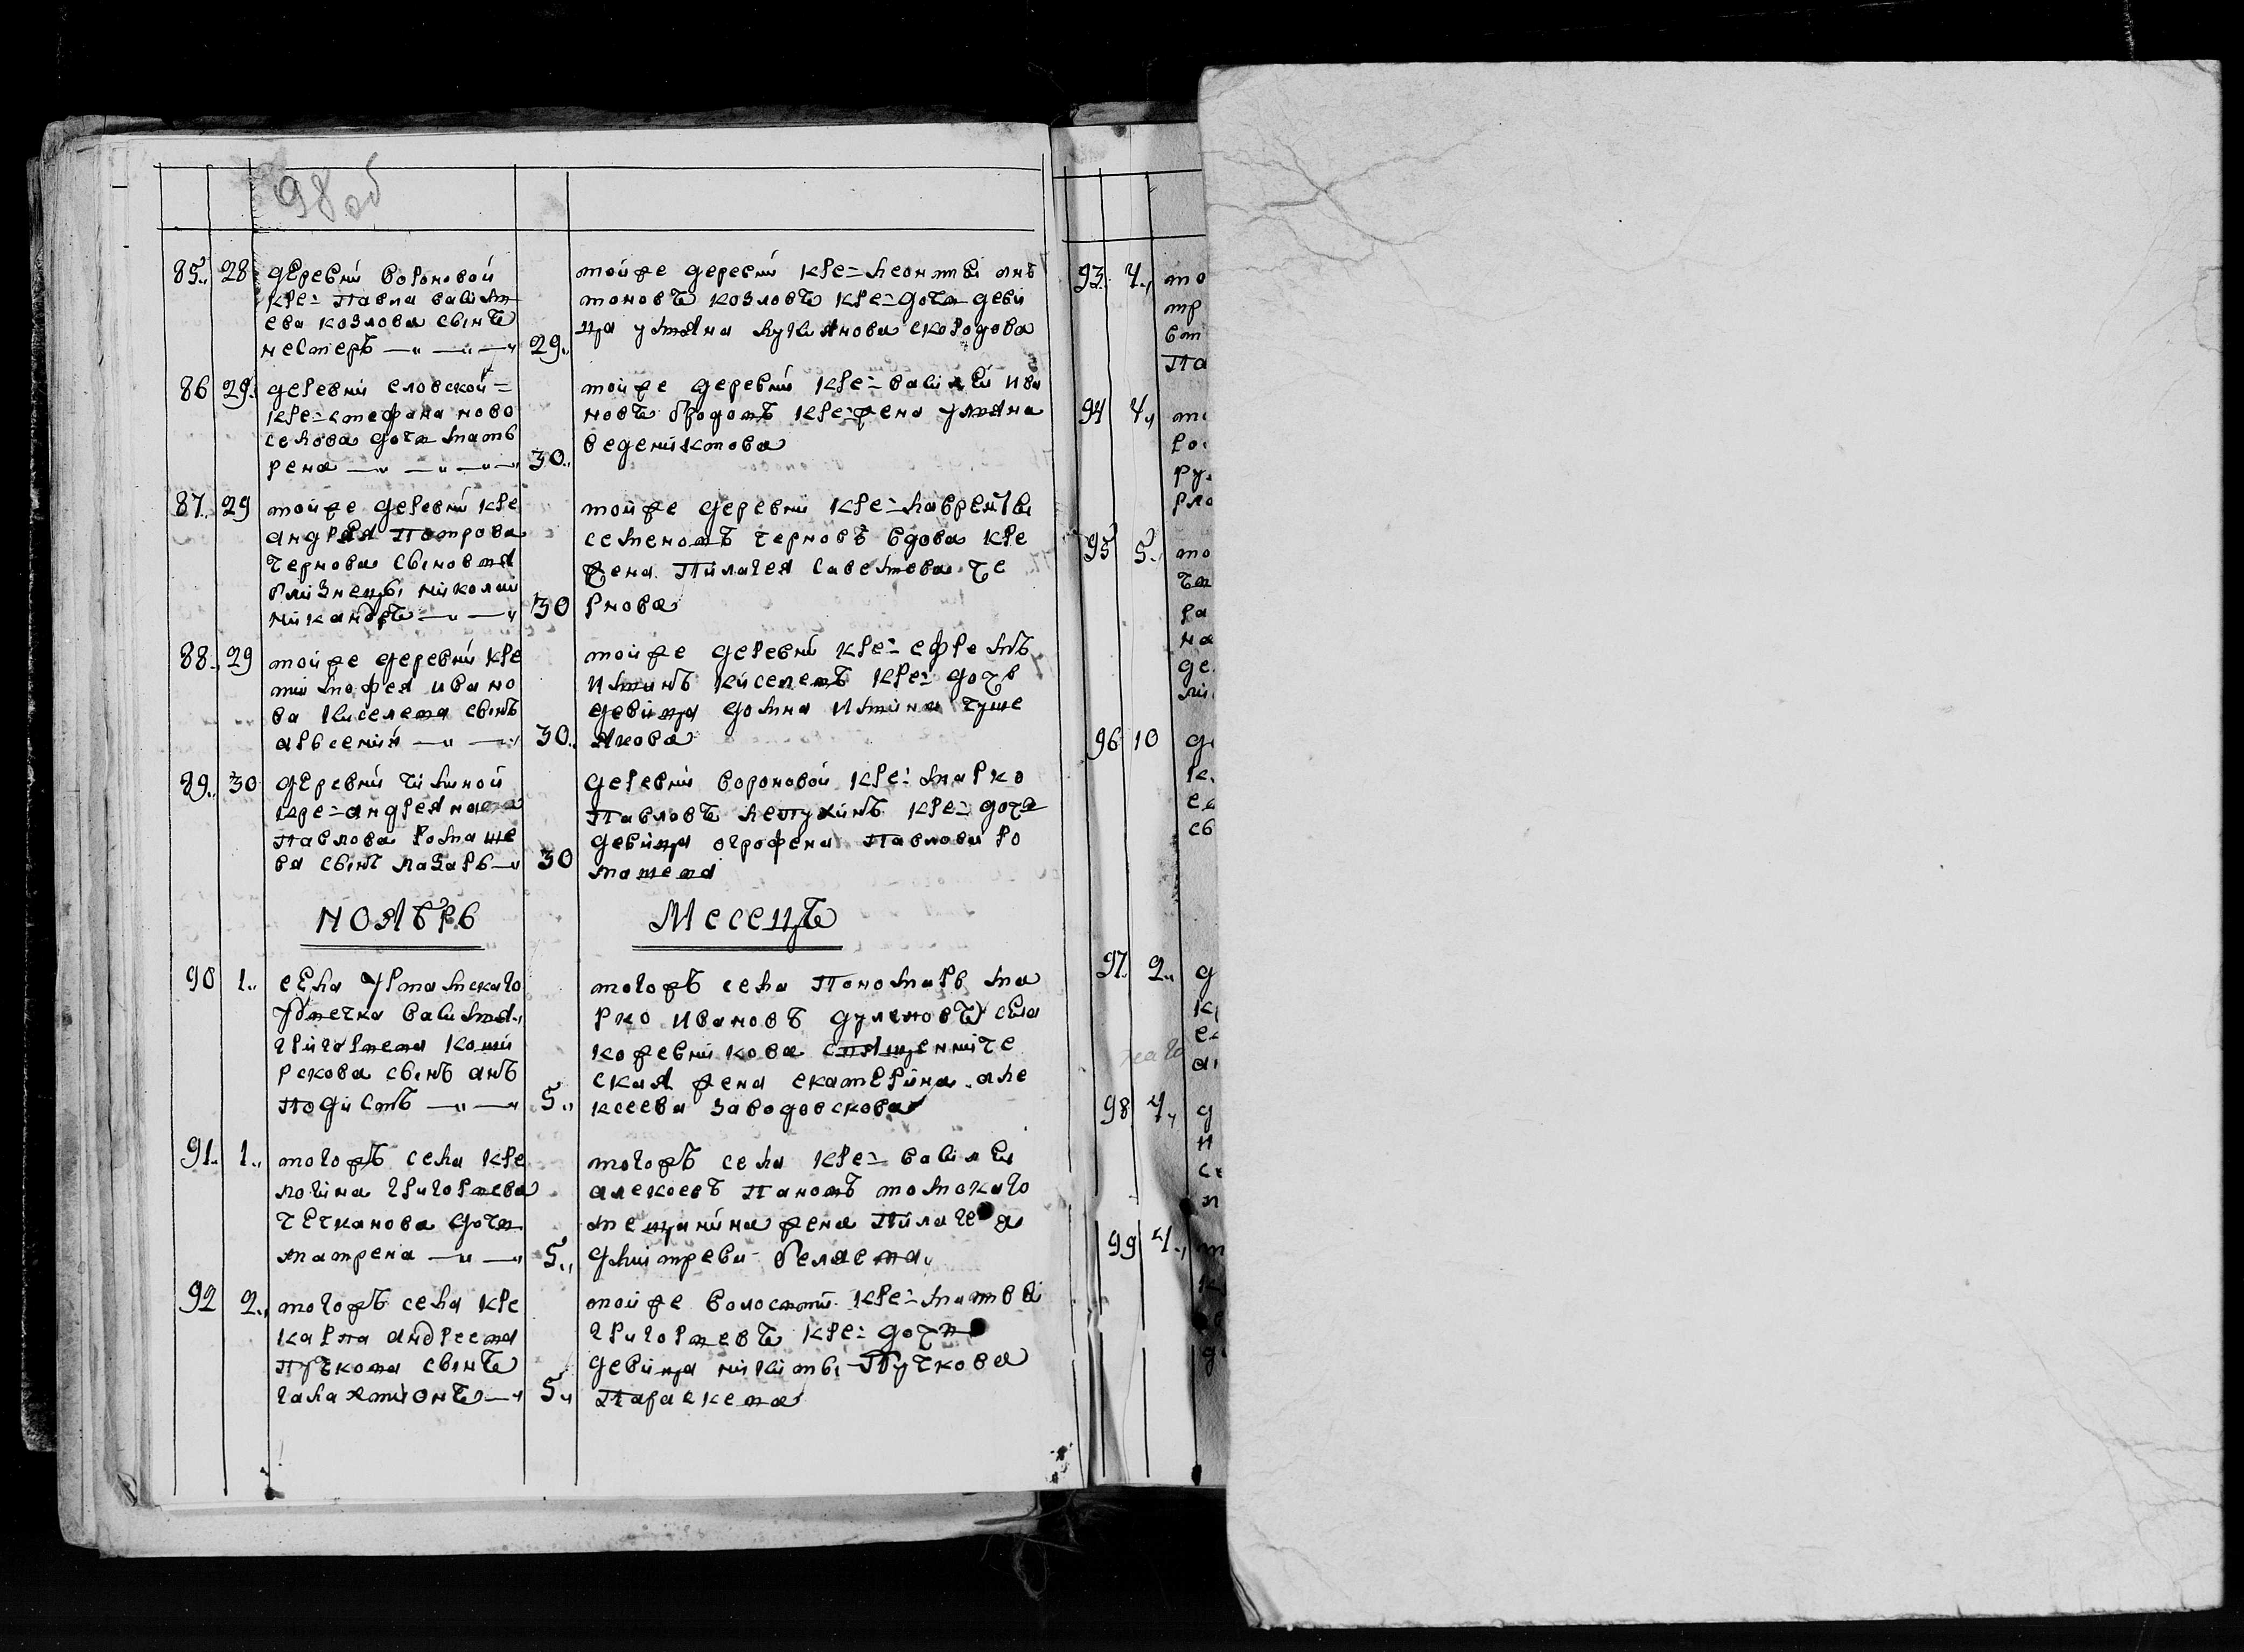 98 об
85 28 деревни вороновой
кре= павла василь
ева козлова сынъ
нестеръ 29
тойже деревни кре= леонтеи ан
тоновъ козловъ кре= дочь деви
ца ульяна лукиянова скородова
86 29 деревни еловской=
кре= стефана ново
селова дочь мат
рена 30
тойже деревни кре= василеи ива
новъ бродовъ кре= жена ульяна
веденихтова
87 29 тойже деревни кре
андрея петрова
чернова сыновья
близнецы николаи
никандръ 30
тойже деревни кре= лаврентеи
семеновъ черновъ вдова кре
жена пилагея савельева че
рнова
88 29 тойже деревни кре
тимофея ивано
ва киселева сынъ
арьсений 30
тойже деревни кре= ефремъ
ильинъ киселевъ кре= дочь
девица домна ильина
89 30 деревни
кре= андреяна
павлова рома ше
ва сынъ лазарь 30
деревни вороновой кре= марко
павловъ кре= дочь
девица огрофена павлова ро
машева
ноябрь месецъ
90 1 села
василья
григорьева
сынъ анъ
подистъ 5
тогожъ села пономарь ма
рко ивановъ села
кожевникова священниче
ская жена екатерина але
ксеева заводовскова
91 1 тогожъ села кре
логина григорьева
чечканова дочь
матрена 5
тогожъ села кре= василеи
алексеевъ пановъ томскаго
мещанина жена пилагея
дмитрева беляева
92 2 тогожъ села кре
карпа андреева
пучкова сынъ
галахтионъ 5
тойже волости кре= матвеи
григорьевъ кре= дочь
девица никиты пучкова
параскева
93 4 то
тр
вт
па
94 4
ро
ру
рло
95 5 то
ра
на
де
96 10 д
ев
св
97 2 д
98 4 д
99 4